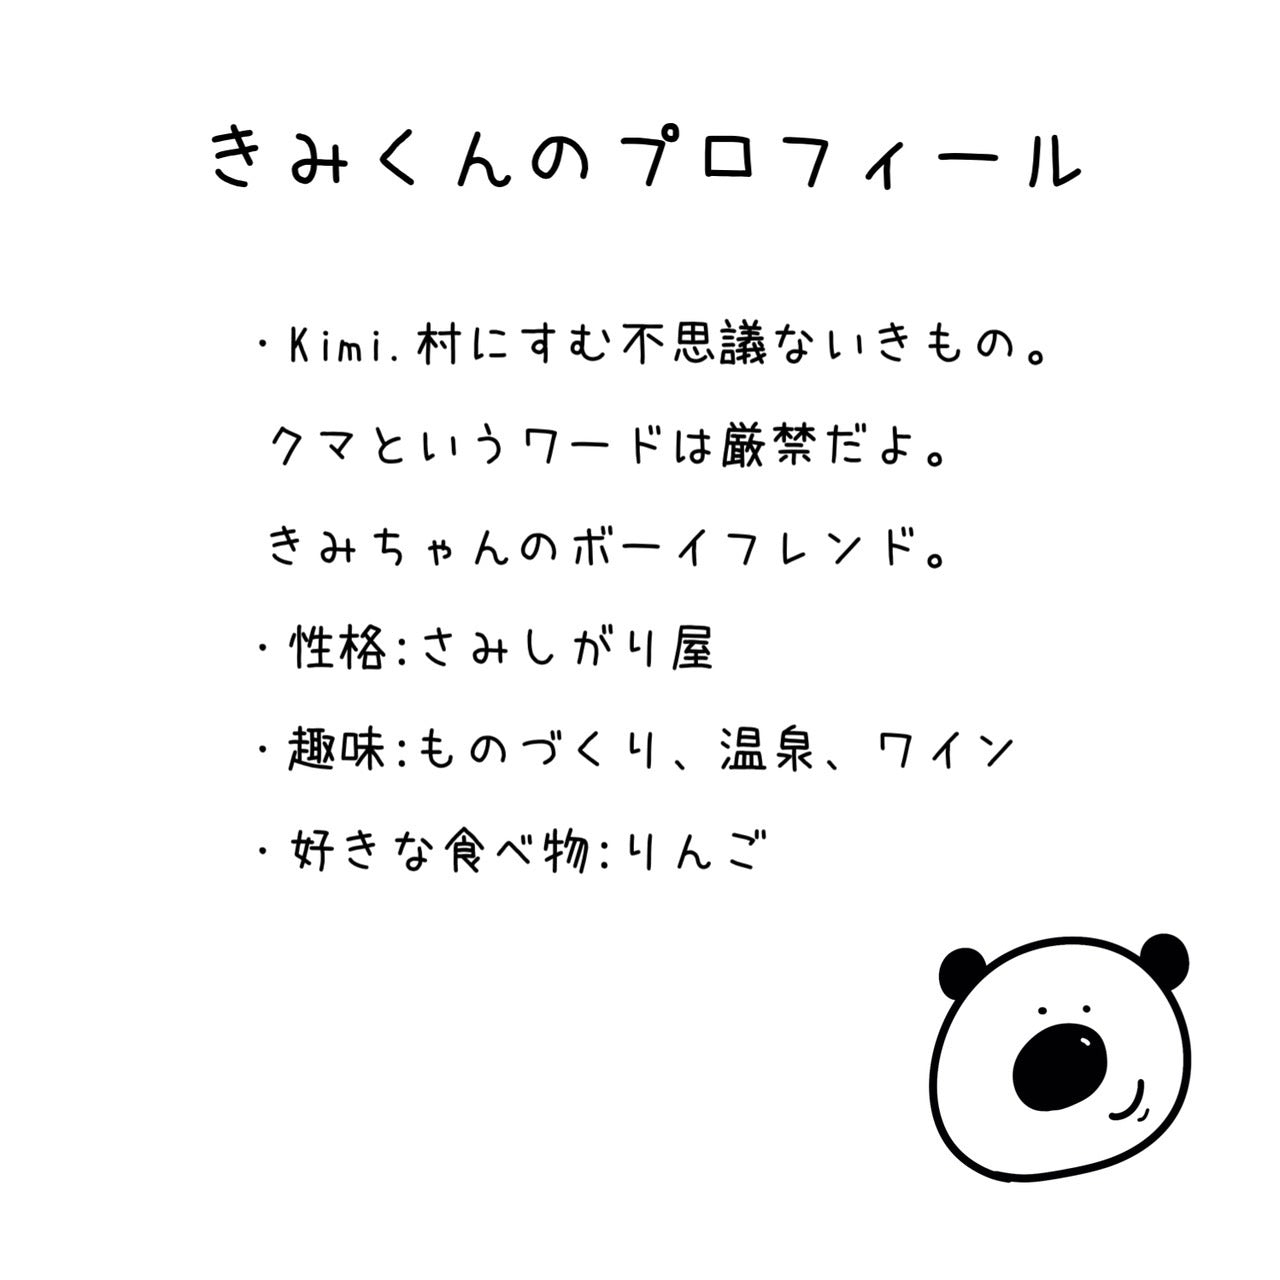 きみくんのプロフィール
・Kimi.村にすむ不思議ないきもの。
クマというワードは厳禁だよ。
きみちゃんのボーイフレンド。
・性格:さみしがり屋
・趣味:ものづくり、温泉、ワイン
・好きな食べ物:りんご